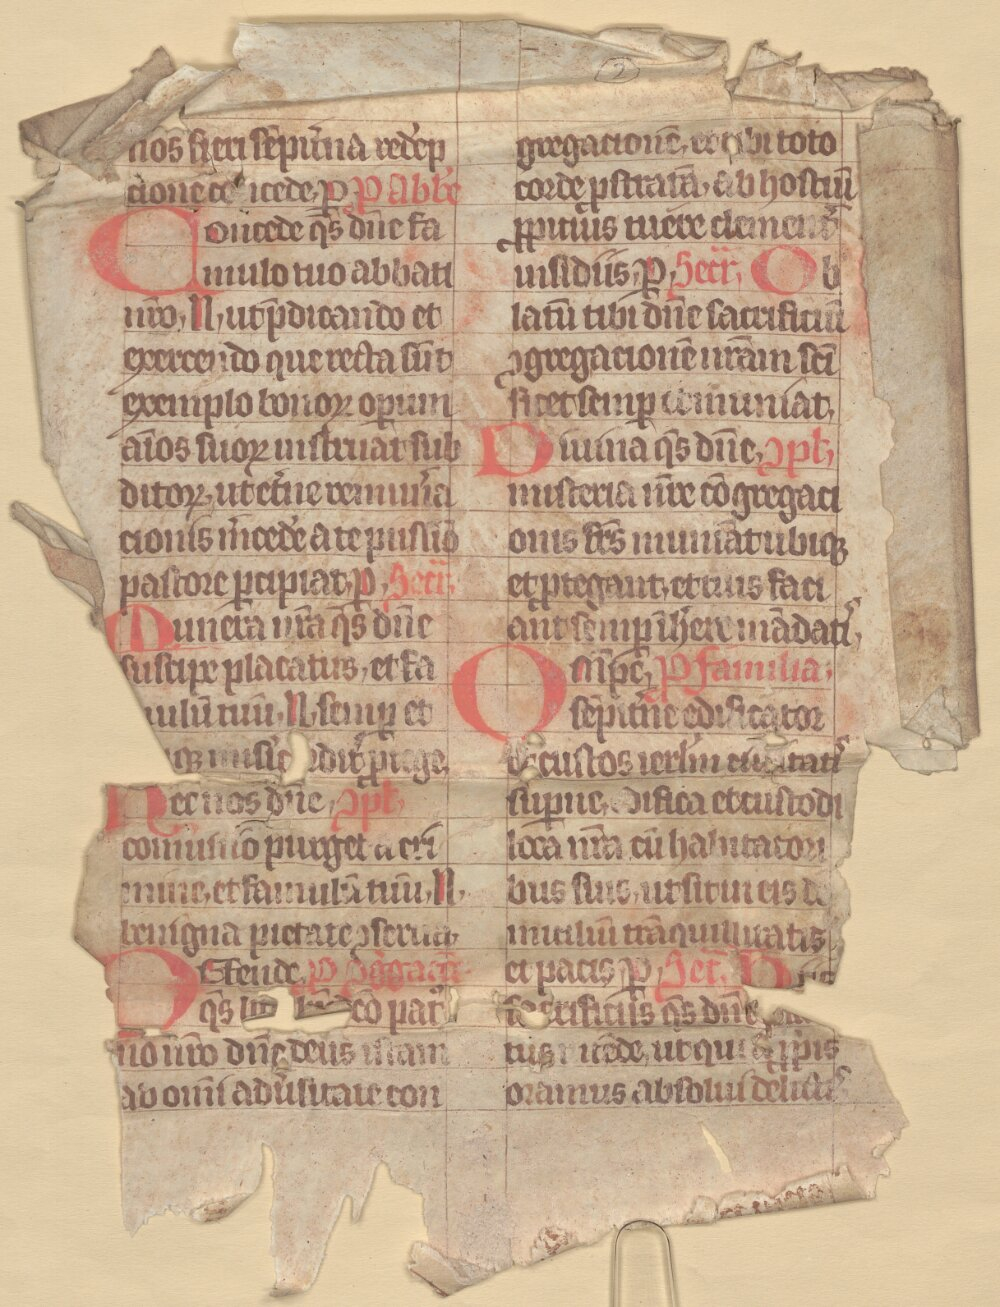 nos fieri sēpit̄na redēp
cione ꝯcede, ꝑ P abb̄e
Concede qs̄ dn̄e fa
mulo tuo abbati
nr̄o, N, ut p̄dicando et
exercendo que recta sūt
exemplo bonoꝝ operum
aīos suoꝝ instruat sub
ditoꝝ, ut et̄ne remun̄a
cionis m̄cedē a te piissīo
pastore ꝑcipiat, ꝑ, Secr̄,
Munera nr̄a qs̄ dn̄e
suscipe placatus, et fa
mulū tuū, N, semꝑ et
ubiqꝫ mis̄icordit̄ ꝓtege,
Hec nos dn̄e, ꝯpl̄,
comunio purget a cri
mine, et famulū tuū, N,
benigna pietate ꝯserua,
Defende, ꝑ ꝯg̃gacōe
qs̄ bt̄o
no nr̄o dn̄e deus istam
ab omī adūsitate con
gregacionē, et tibi toto
corde ꝓstratā, ab hostiū
ꝓpitius tuere clement̄
insidiis, ꝑ, Secr̄, Ob
latū tibi dn̄e sacrificiū
ꝯgregacionē nr̄am sēꝑ
ficet semꝑ et muniat,
Diuina qs̄ dn̄e, ꝯpl̄,
misteria nr̄e cōgregaci
onis frēs muniāt ubiqꝫ
et ꝓtegant, et tuis faci
ant semꝑ īh̄ere mādatꝭ,
Omp̄c̄, P familia,
sēpit̄ne edificator
et custos ierl̄m ciuitatꝭ
suꝑne, edifica et custodi
loca nr̄a cū habitatori
bus suis, ut sit in eis do
miciliū trāquillitatis
et pacis, ꝑ Secr̄, H
sacrificiis qs̄ dn̄e
tus ꝯcede, ut qui ꝓpriis
oramus absolui delictꝭ